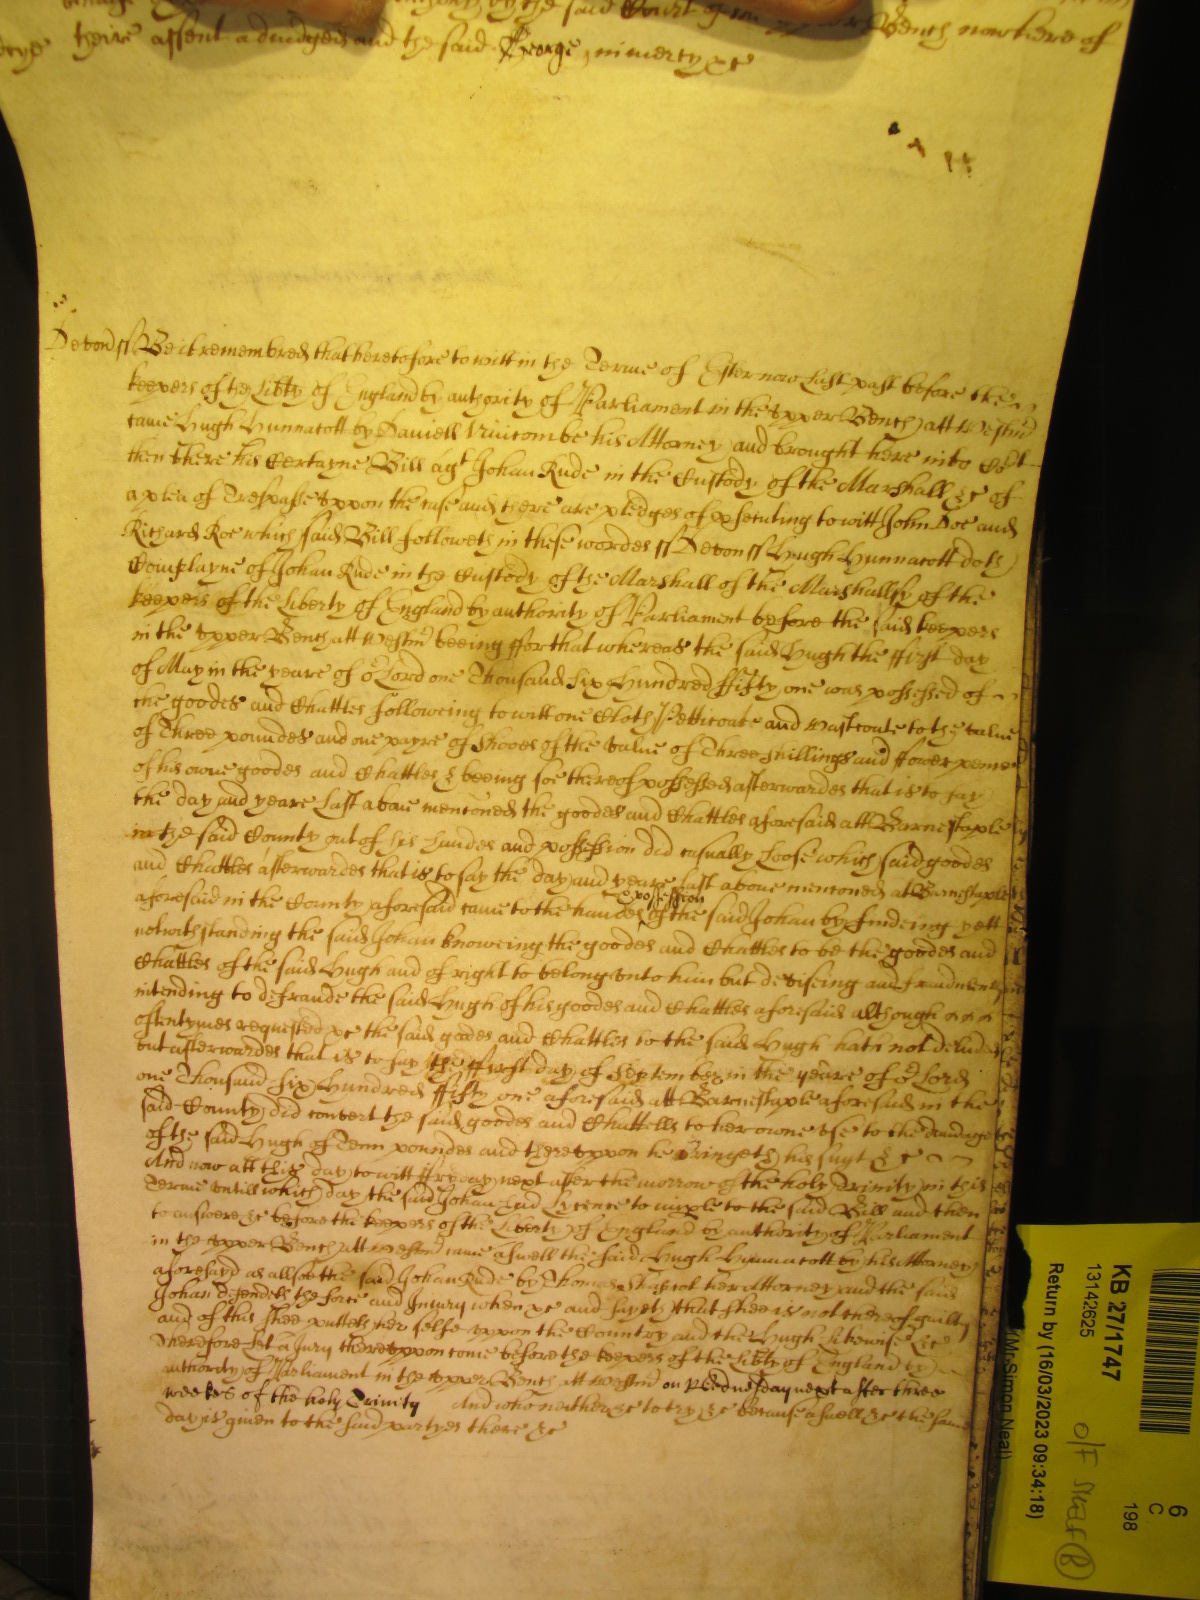 the said Court of Bench now here of
theire assent adiudged and the said George in mercy &c
Devon ss Be it remembred that heretofore to witt in the Terme of Ester now last past before the
keepers of the Libty of England by authority of Parliament in the upper Bench att Westmr
came Hugh Hunnacott by Daniell Vinicombe his Attorney and brought here into Cort
then there his Certayne Bill agt Johan Rude in the Custody of the Marshall &c of
a plea of Trespasse uppon the case and there are pledges of psecuting to witt John Doe and
Richard Roe which said Bill followeth in these wordes ss Devon ss Hugh Hunnacott doth
Complayne of Johan Rude in the Custody of the Marshall of the Marshallsy of the
keepers of the Liberty of England by authority of Parliament before the said keepers
in the upper Bench att Westmr beeing ffor that whereas the said Hugh the ffirst day
of May in the yeare of or Lord one Thousand six Hundred ffifty one was possessed of
the goodes and Chattles followeing to witt one Cloth Petticoate and wastcoate to the value
of Three poundes and one payre of Shooes of the value of Three shillings and ffower pence
of his owne goodes and Chattles & beeing soe thereof possessed afterwardes that is to say
the day and yeare last above mentoned the goodes and Chattles aforesaid att Barnestaple
in the said County out of his handes and possession did casually loose which said goodes
and Chattles afterwardes that is to say the day and yeare last above mentoned at Barnestaple
aforesaid in the County aforesaid came to the handes & possession of the said Johan by findeing yett
notwithstanding the said Johan knoweing the goodes and Chattles to be the goodes and
Chattles of the said Hugh and of right to belong unto him but deviseing and fraudulently
intending to defraude the said Hugh of his goodes and Chattles aforesaid although
oftentymes requested &c the said goodes and Chattles to the said Hugh hath not delivered
but afterwardes that is to say the ffirst day of September in the yeare of or Lord
one Thousand six Hundred ffifty one aforesaid att Barnestaple aforesaid in the
said County did convert the said goodes and Chattells to her owne use to the damage
of the said Hugh of Tenn poundes and thereuppon he bringeth his suyt &c
And now att this day to witt ffryday next after the morrow of the holy Trinity in this
Terme untill which day the said Johan had Lycence to imple to the said Bill and then
to answere &c before the keepers of the Liberty of England by authority of Parliament
in the upper Bench att Westmr came aswell the said Hugh Hunnacott by his Attorney
aforesayd as allsoe the said Johan Rude by Thomas her Attorney and the said
Johan defendeth the force and Iniury when &c and sayeth that shee is not thereof guilty
and of this shee putteth her selfe uppon the Country and the Hugh likewise &c
Therefore let a Jury thereuppon come before the keepers of the Libty of England by
authority of Parliament in the upper Bench att Westmr on Wednesday next after three
weekes of the holy Trinity And who neither &c to try &c because aswell &c the same
day is given to the said partyes there &c
KB 27/1747
13142625
O/F
Return by (16/03/2023 09:34:18)
(Mr Simon Neal)
6
C
198